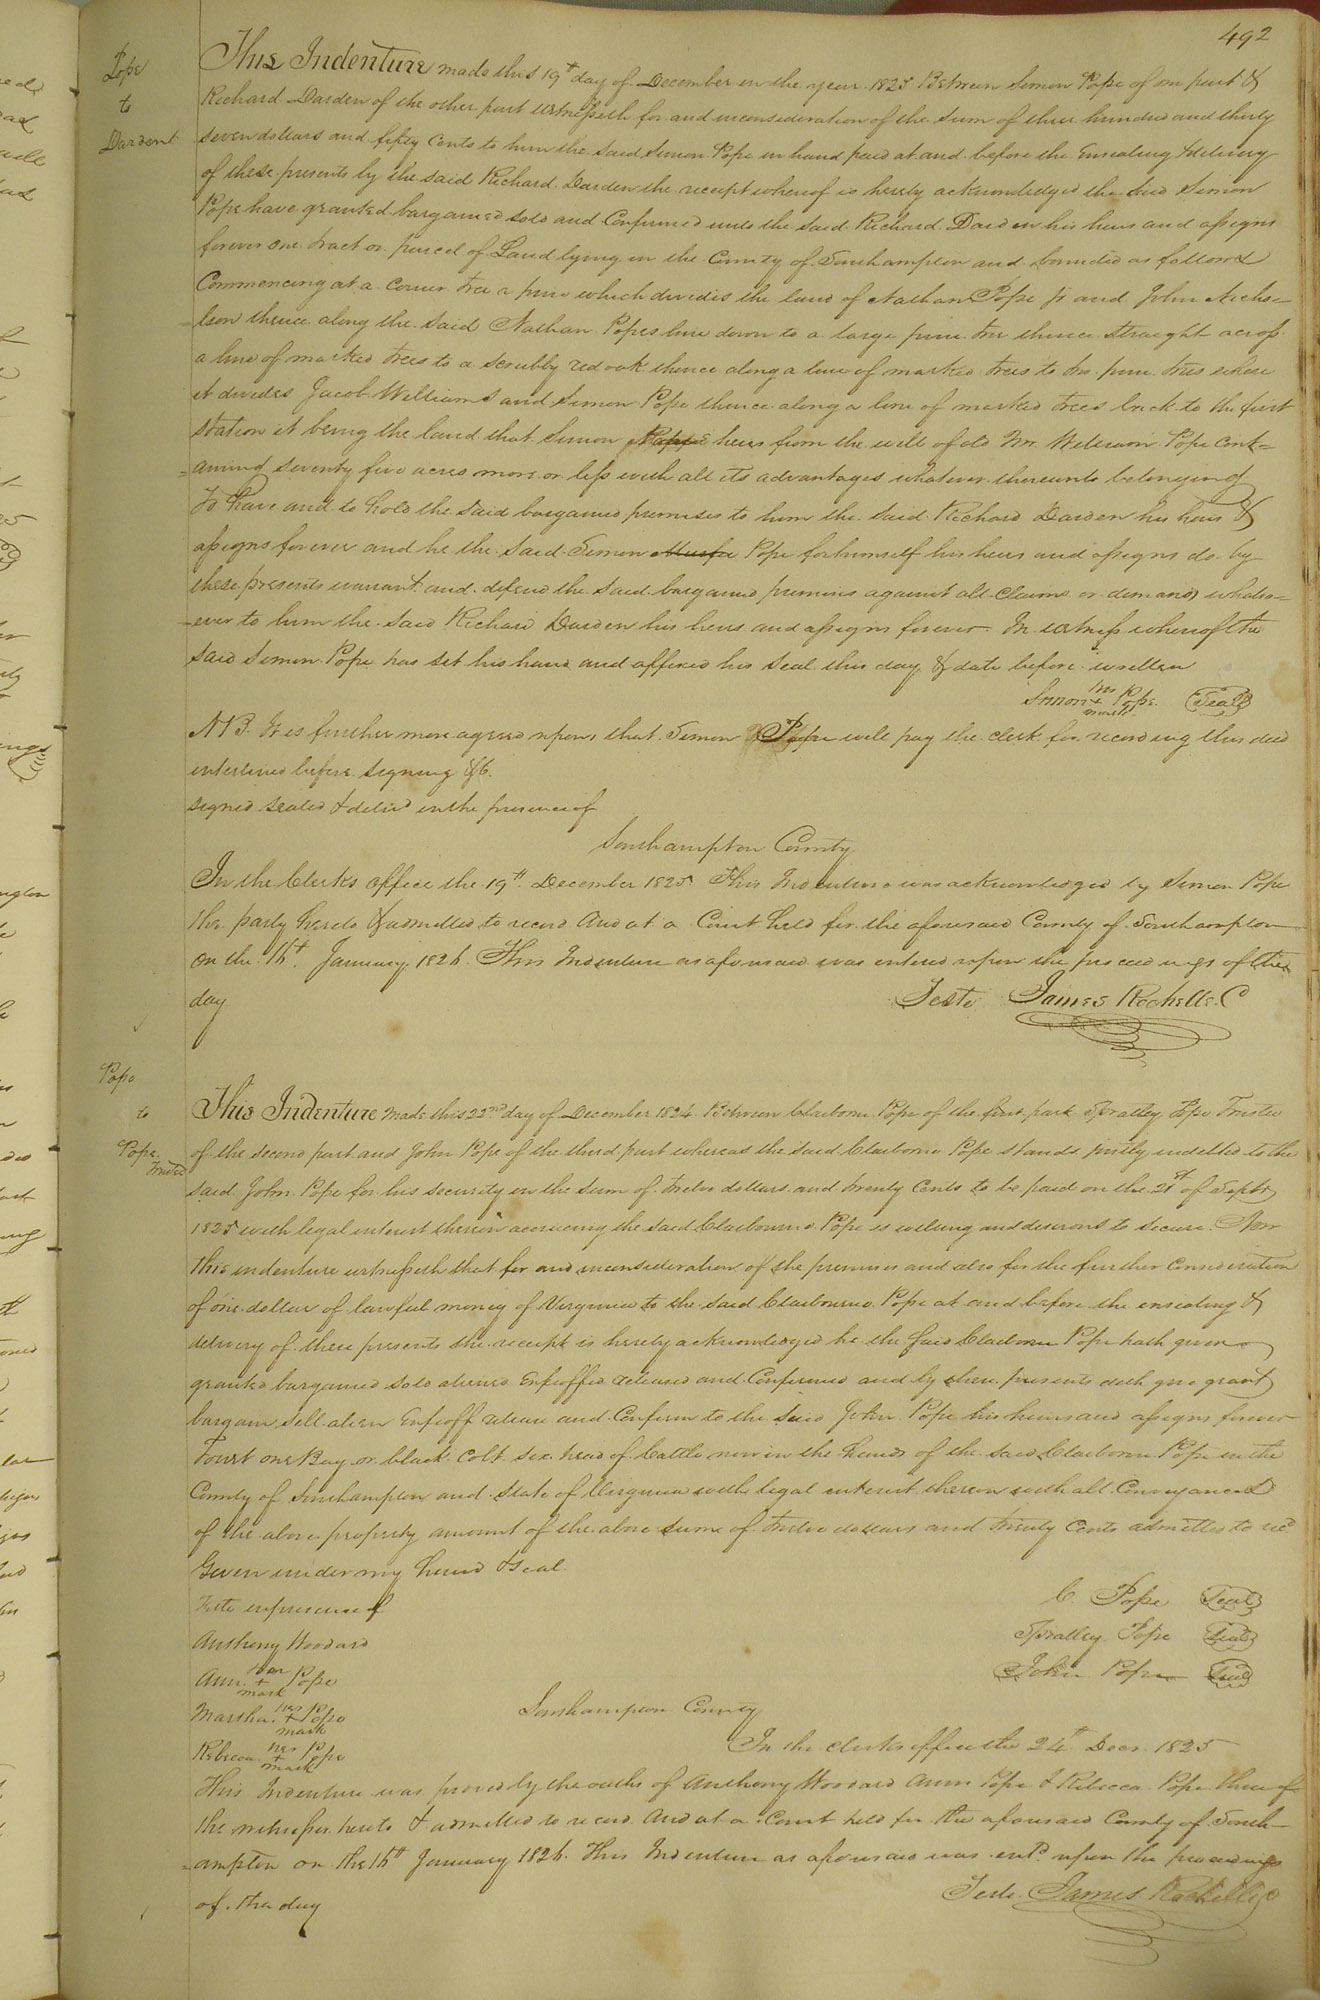 492
Pope
to
Dardent
This Indenture made this 19th day of December in the year 1825 Between Simon Pope of one part &
Richard Darden of the other part witnesseth for and inconsideration of the sum of three hundred and thirty
seven dollars and fifty Cents to him the said Simon Pope in hand paid at and before the Ensealing & delivery
of these presents by the said Richard Darden the receipt whereof is hereby acknowledged the said Simon
Pope have granted bargained sold and Confirmed unto the said Richard Darden his heirs and assigns
forever one tract or parcel of Land lying in the County of Southampton and bounded as follows
Commencing at a corner tree a pine which divides the land of Nathan Pope jr and John Nicho=
=lson thence along the said Nathan Popes line down to a large pine tree thence straight across
a line of marked trees to a scrubby red oak thence along a line of marked trees to pine trees where
it divides Jacob Williams and Simon Pope thence along a line of marked trees back to the first
station it being the land that Simon heirs from the will of old Mr. William Pope cont=
=aining seventy five acres more or less with all its advantages whatever thereunto belonging
To have and to hold the said bargained premises to him the said Richard Darden his heirs &
assigns forever and he the said Simon Pope for himself his heirs and assigns do by
these presents warrant and defend the said bargained premises against all Claims or demands whatso=
=ever to him the said Richard Darden his heirs and assigns forever. In witness whereof the
said Simon Pope has set his hand and affixed his seal this day & date before written
Simon his + mark Pope (Seal)
NB. It is further more agreed upon that Simon Pope will pay the clerk for recording this deed
interlined before signing &c.
signed sealed & delivd in the presence of
Southampton County
In the Clerks office the 19th December 1825 This Indenture was acknowledged by Simon Pope
the party hereto & admitted to record And at a Court held for the aforesaid County of Southampton
on the 16th January 1826. This Indenture as aforesaid was entered upon the proceedings of the
day
Teste James Rochelle. C
Pope
to
Pope
Trustee
This Indenture made this 22nd day of December 1824 Between Claiborne Pope of the first part Spratley Pope Trustee
of the second part and John Pope of the third part whereas the said Claiborne Pope stands justly indebted to the
said John Pope for his security in the sum of twelve dollars and twenty Cents to be paid on the 21st of Septr
1825 with legal interest therein accrueing the said Claibourne Pope is willing and desirous to secure. Now
this indenture witnesseth that for and inconsideration of the premises and also for the further Consideration
of one dollar of lawful money of Virginia to the said Claibourne Pope at and before the ensealing &
delivery of these presents the receipt is hereby acknowledged he the said Claiborne Pope hath given
granted bargained sold aliened Enfeoffed released and Confirmed and by these presents doth give grant
bargain sell alien Enfeoff release and Confirm to the said John Pope his heirs and assigns forever
Towit one Bay or black Colt six head of Cattle now in the hands of the said Claiborne Pope in the
County of Southampton and State of Virginia with legal interest thereon with all Conveyances
of the above property amount of the above sume of twelve dollars and twenty Cents admitted to recd
Given under my hand & seal.
Teste in presence of
C. Pope (Seal)
Anthony Woodard
Spratley Pope (Seal)
Ann her + mark Pope
John Pope (Seal)
Martha her + mark Pope
Southampton County
Rebecca her + mark Pope
In the clerks office the 24th Decr. 1825
This Indenture was proved by the oaths of Anthony Woodard Ann Pope & Rebecca Pope three of
the witnesses hereto & admitted to record And at a Court held for the aforesaid County of South=
=ampton on the 16th January 1826. This Indenture as aforesaid was entd. upon the proceedings
of the day
Teste James Rochelle C